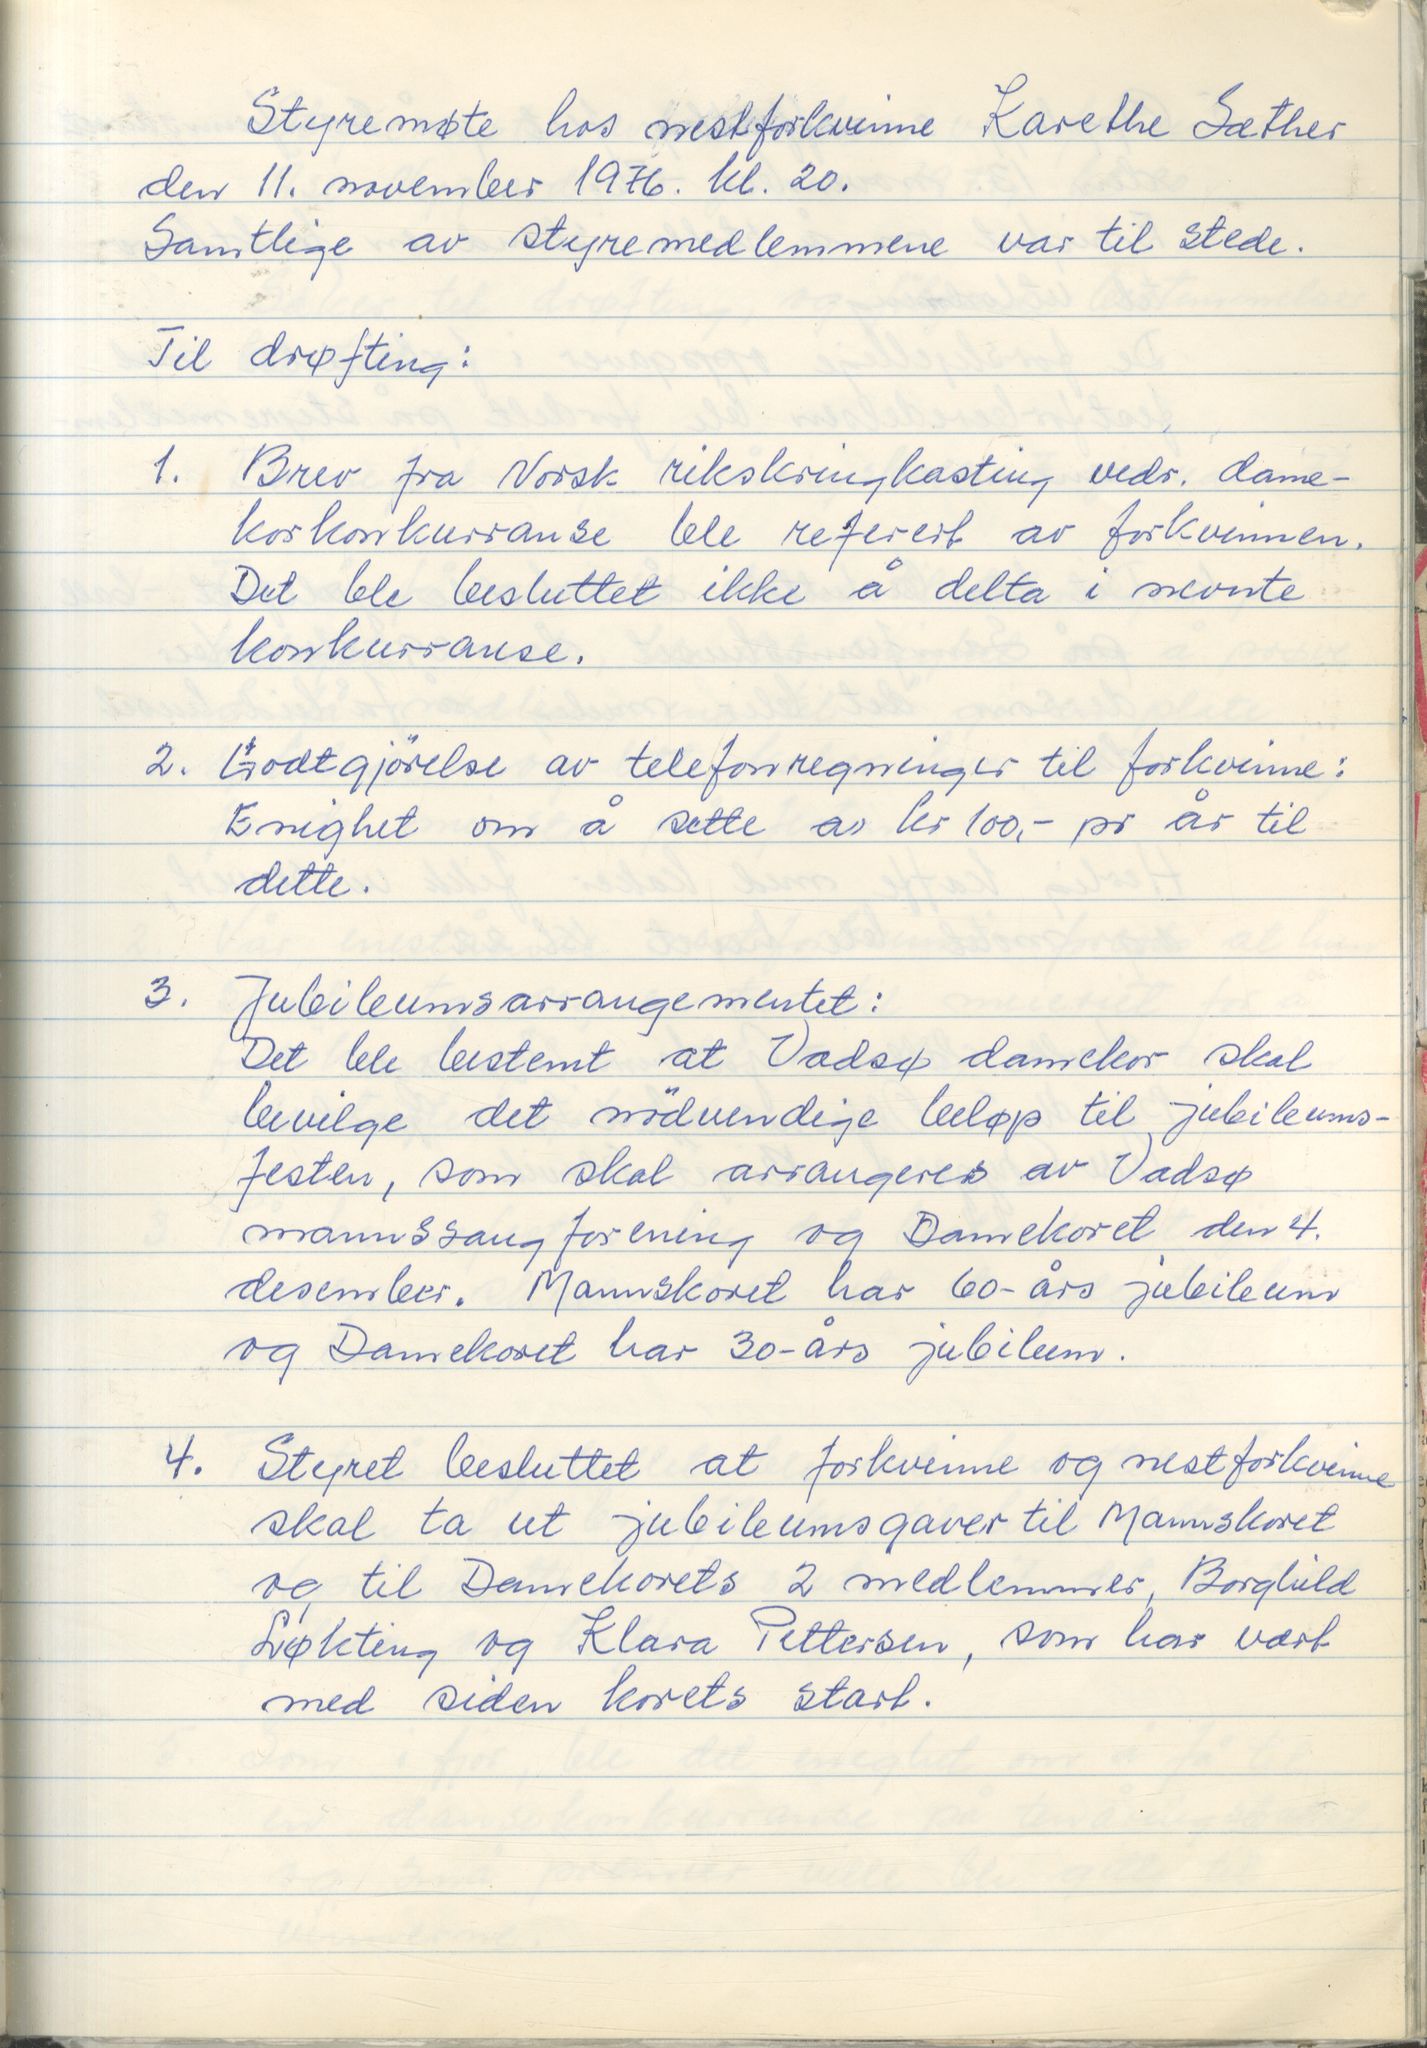 Styremøte hos nestforkvinne Karethe Sæther
den 11. november 1976. kl. 20.
Samtlige av styremedlemmene var til stede.
Til drøfting:
1. Brev fra Norsk rikskringkasting vedr. dame-
korkonkurranse ble referert av forkvinnen.
Det ble besluttet ikke å delta i nevnte
konkurranse.
2. Godtgjörelse av telefonregninger til forkvinne:
Enighet om å sette av kr 100,- pr år til
dette.
3. Jubileumsarrangementet:
Det ble bestemt at Vadsø damekor skal
bevilge det nödvendige beløp til jubileums-
festen, som skal arrangeres av Vadsø
mannssangforening og Damekoret den 4.
desember. Mannskoret har 60-års jubileum
og Damekoret har 30-års jubileum.
4. Styret besluttet at forkvinne og nestforkvinne
skal ta ut jubileumsgaver til Mannskoret
og til Damekorets 2 medlemmer, Borghild
Løkting og Klara Pettersen, som har vært
med siden korets start.